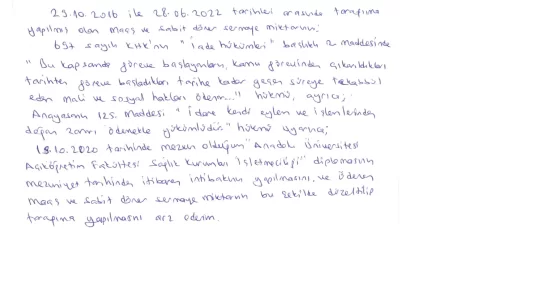 29.10.2016 ile 28.06.2022 tarihleri arasında tarafıma
yapılmış olan maaş ve sabit döner sermaye miktarının;
657 sayılı KHK'nın "İade hükümleri" başlıklı 2 maddesinde
"Bu kapsamda göreve başlayanlara, kamu görevinden çıkarıldıkları
tarihten göreve başladıkları tarihe kadar geçen süreye tekabül
eden mali ve sosyal hakları ödenir..." hükmü, ayrıca;
Anayasanın 125. Maddesi "İdare kendi eylem ve işlemlerinden
doğan zararı ödemekle yükümlüdür." hükmü uyarınca;
15.10.2020 tarihinde mezun olduğum "Anadolu Üniversitesi
Açıköğretim Fakültesi Sağlık Kurumları İşletmeciliği" diplomasının
mezuniyet tarihinden itibaren intibakının yapılmasını, ve ödenen
maaş ve sabit döner sermaye miktarının bu şekilde düzeltilip
tarafıma yapılmasını arz ederim.